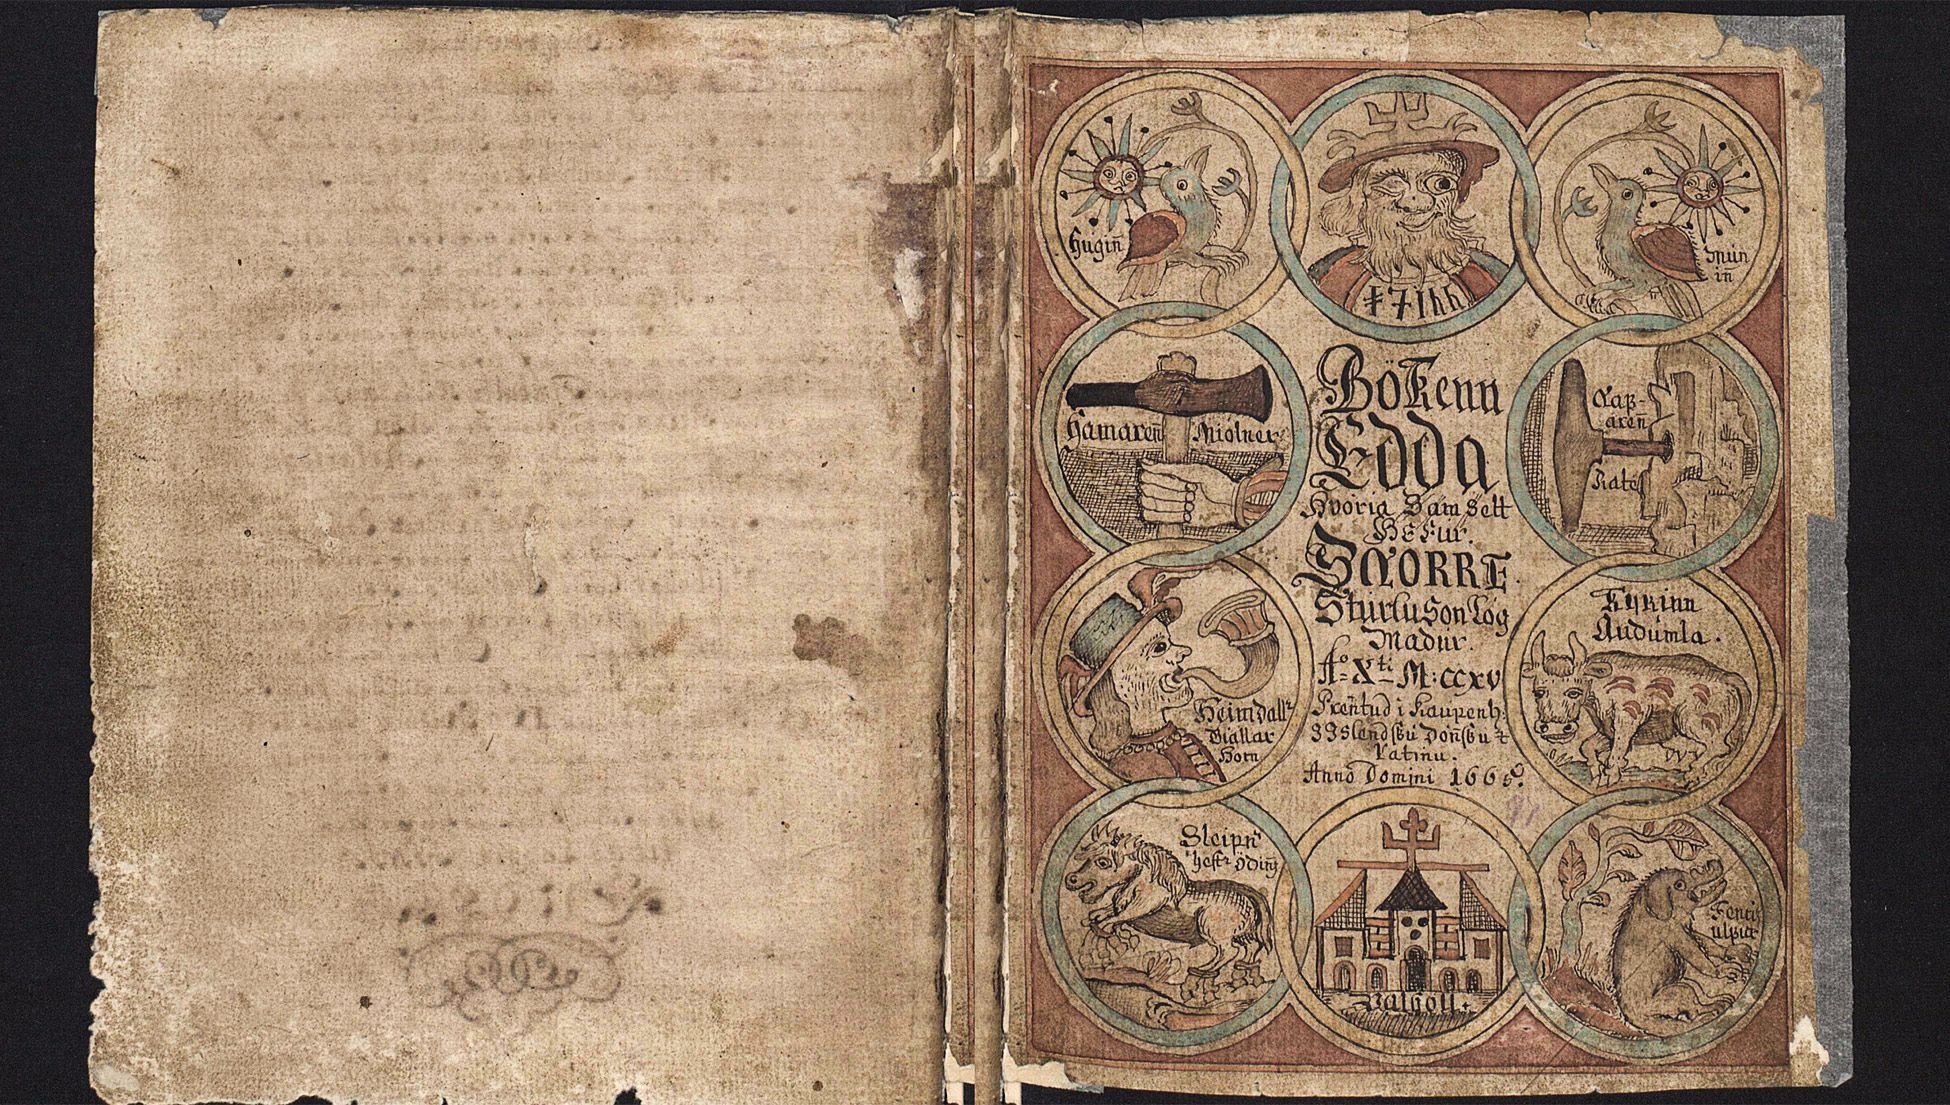 Hugin̄
Mun
in̄
Hamaren̄ Miolner
Böken̄n
Edda
Hvöria Samsett
Hefur.
Snorre
Sturluson Lög
Madur.
Aº Xti M:CCXV
Prentud i Kaupenh:
Latinu.
Anno Domini 1665.
Heimdallr
Diallar
Horn
Kyrinn
Audumla.
Sleipnr
hestr Odins
Valholl.
Fenris
ulfur